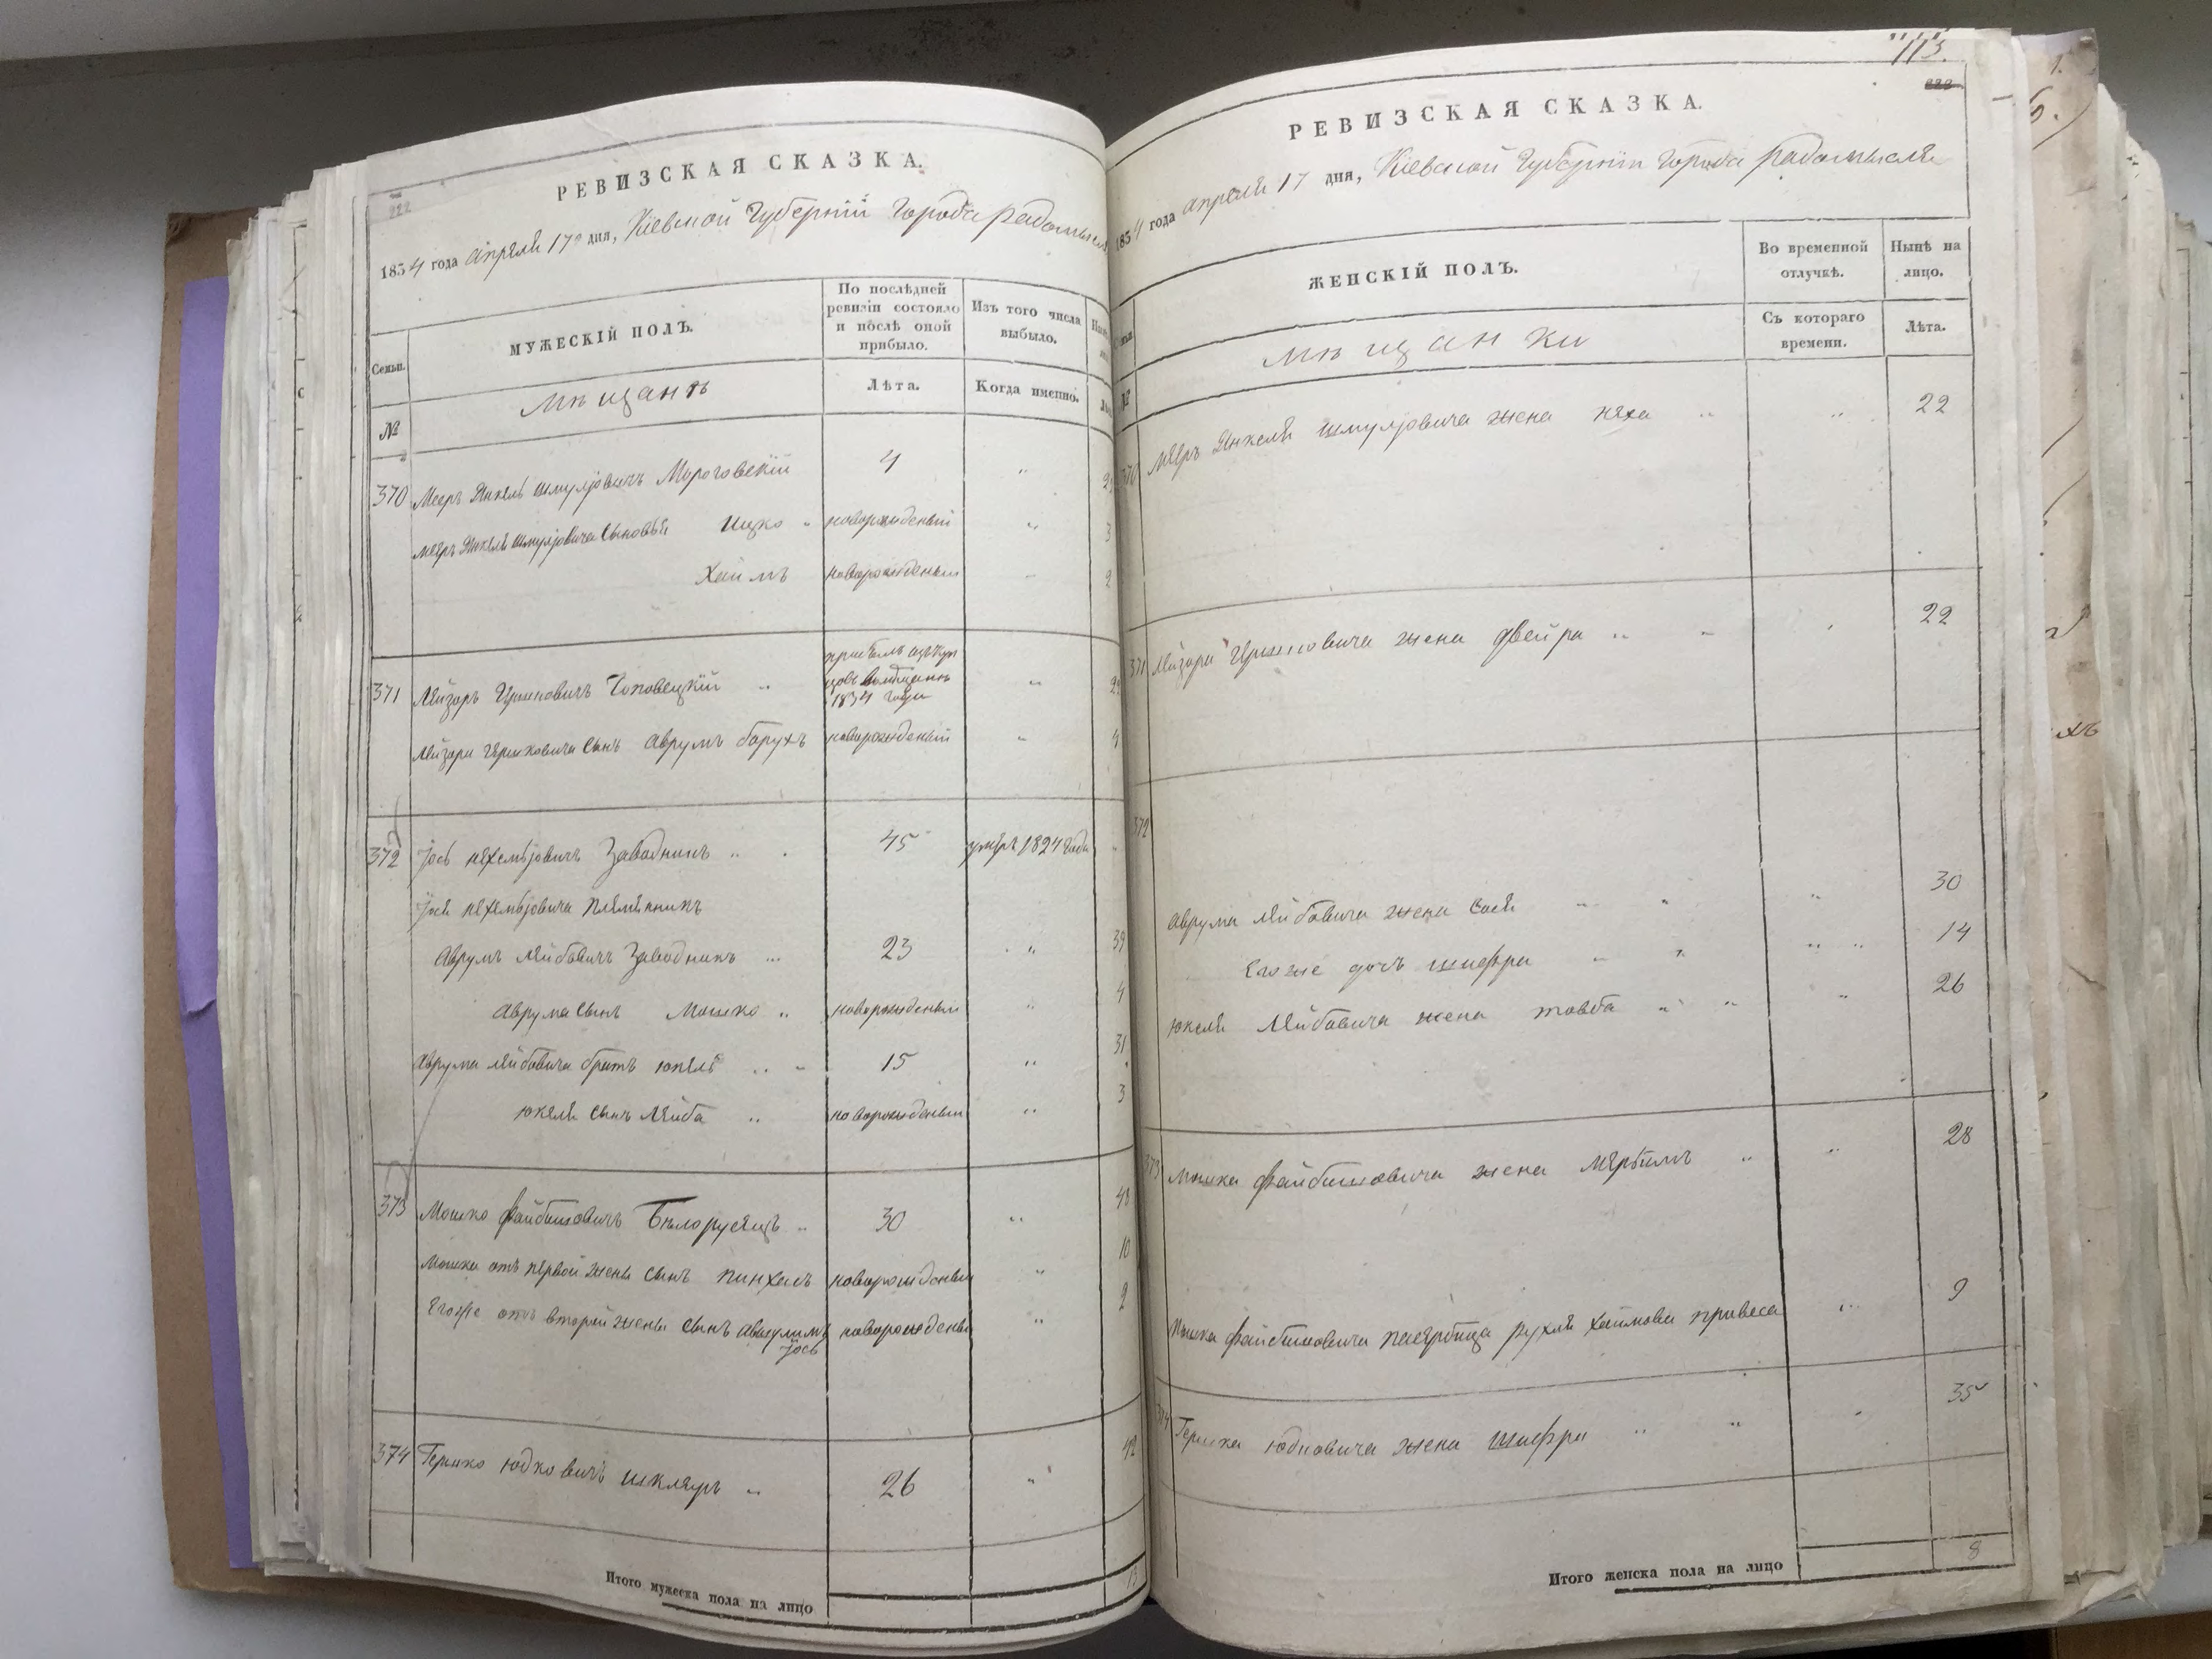 222
РЕВИЗСКАЯ СКАЗКА.
1834 года апреля 17го дня, Кіевской Губерніи Города Радомысля
Семьи.
МУЖЕСКІЙ ПОЛЪ.
По послѣдней ревизіи состояло и послѣ оной прибыло.
Изъ того числа выбыло.
№
Мѣщанъ
Лѣта.
Когда именно.
370 Мееръ Янкель Шмуліовичъ Мороговскій 4 "
Мееръ Янкеля Шмуліовича сыновья Ицко " новорожденый " 3
Хаимъ новорожденый " 2
371 Лейзоръ Гершковичъ Чоповецкій " прибылъ изъ куп
цовъ въ мѣщане
1834 года "
Лейзора Гершковича сынъ Аврумъ Борухъ новорожденый " 4
372 Іось Нехемьіовичъ Заводникъ " 45 умеръ 1824 года
Іося Нехемьіовича племянникъ
Аврумъ Лейбовичъ Заводникъ 23 " 39
Аврума сынъ Мошко " новорожденый " 4
Аврума Лейбовича братъ Юкель " 15 " 31
Юкеля сынъ Лейба " новорожденый " 3
373 Мошко Файбишовичъ Бѣлорусецъ " 30 " 48
Мошка отъ первой жены сынъ Пинхасъ новорожденый " 10
Его же отъ второй жены сынъ Авшулимъ новорожденый " 2
Іось
374 Гершко Юдковичъ Шкляръ " 26 " 42
Итого мужеска пола на лицо 13
113.
222
РЕВИЗСКАЯ СКАЗКА.
1834 года апреля 17 дня, Кіевской Губерніи Города Радомысля
ЖЕНСКІЙ ПОЛЪ.
Во временной отлучкѣ.
Нынѣ на лицо.
№
Мѣщанки
Съ котораго времени.
Лѣта.
370 Мееръ Янкеля Шмуліовича жена Неха " " 22
371 Лейзора Гершковича жена Двейра " " 22
372
Аврума Лейбовича жена Сося " " 30
Его же дочь Шифра " " 14
Юкеля Лейбовича жена Товба " " 26
373 Мошка Файбишовича жена Мерьимъ " " 28
Мошка Файбишовича пасербица Рухля Хаимова Привеса " 9
374 Гершка Юдковича жена Шифра " " 35
Итого женска пола на лицо 8